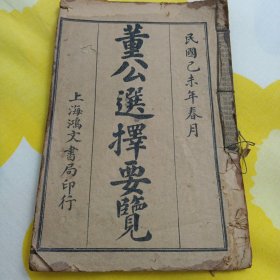 民國己未年春月
董公選擇要覽
上海鴻文書局印行